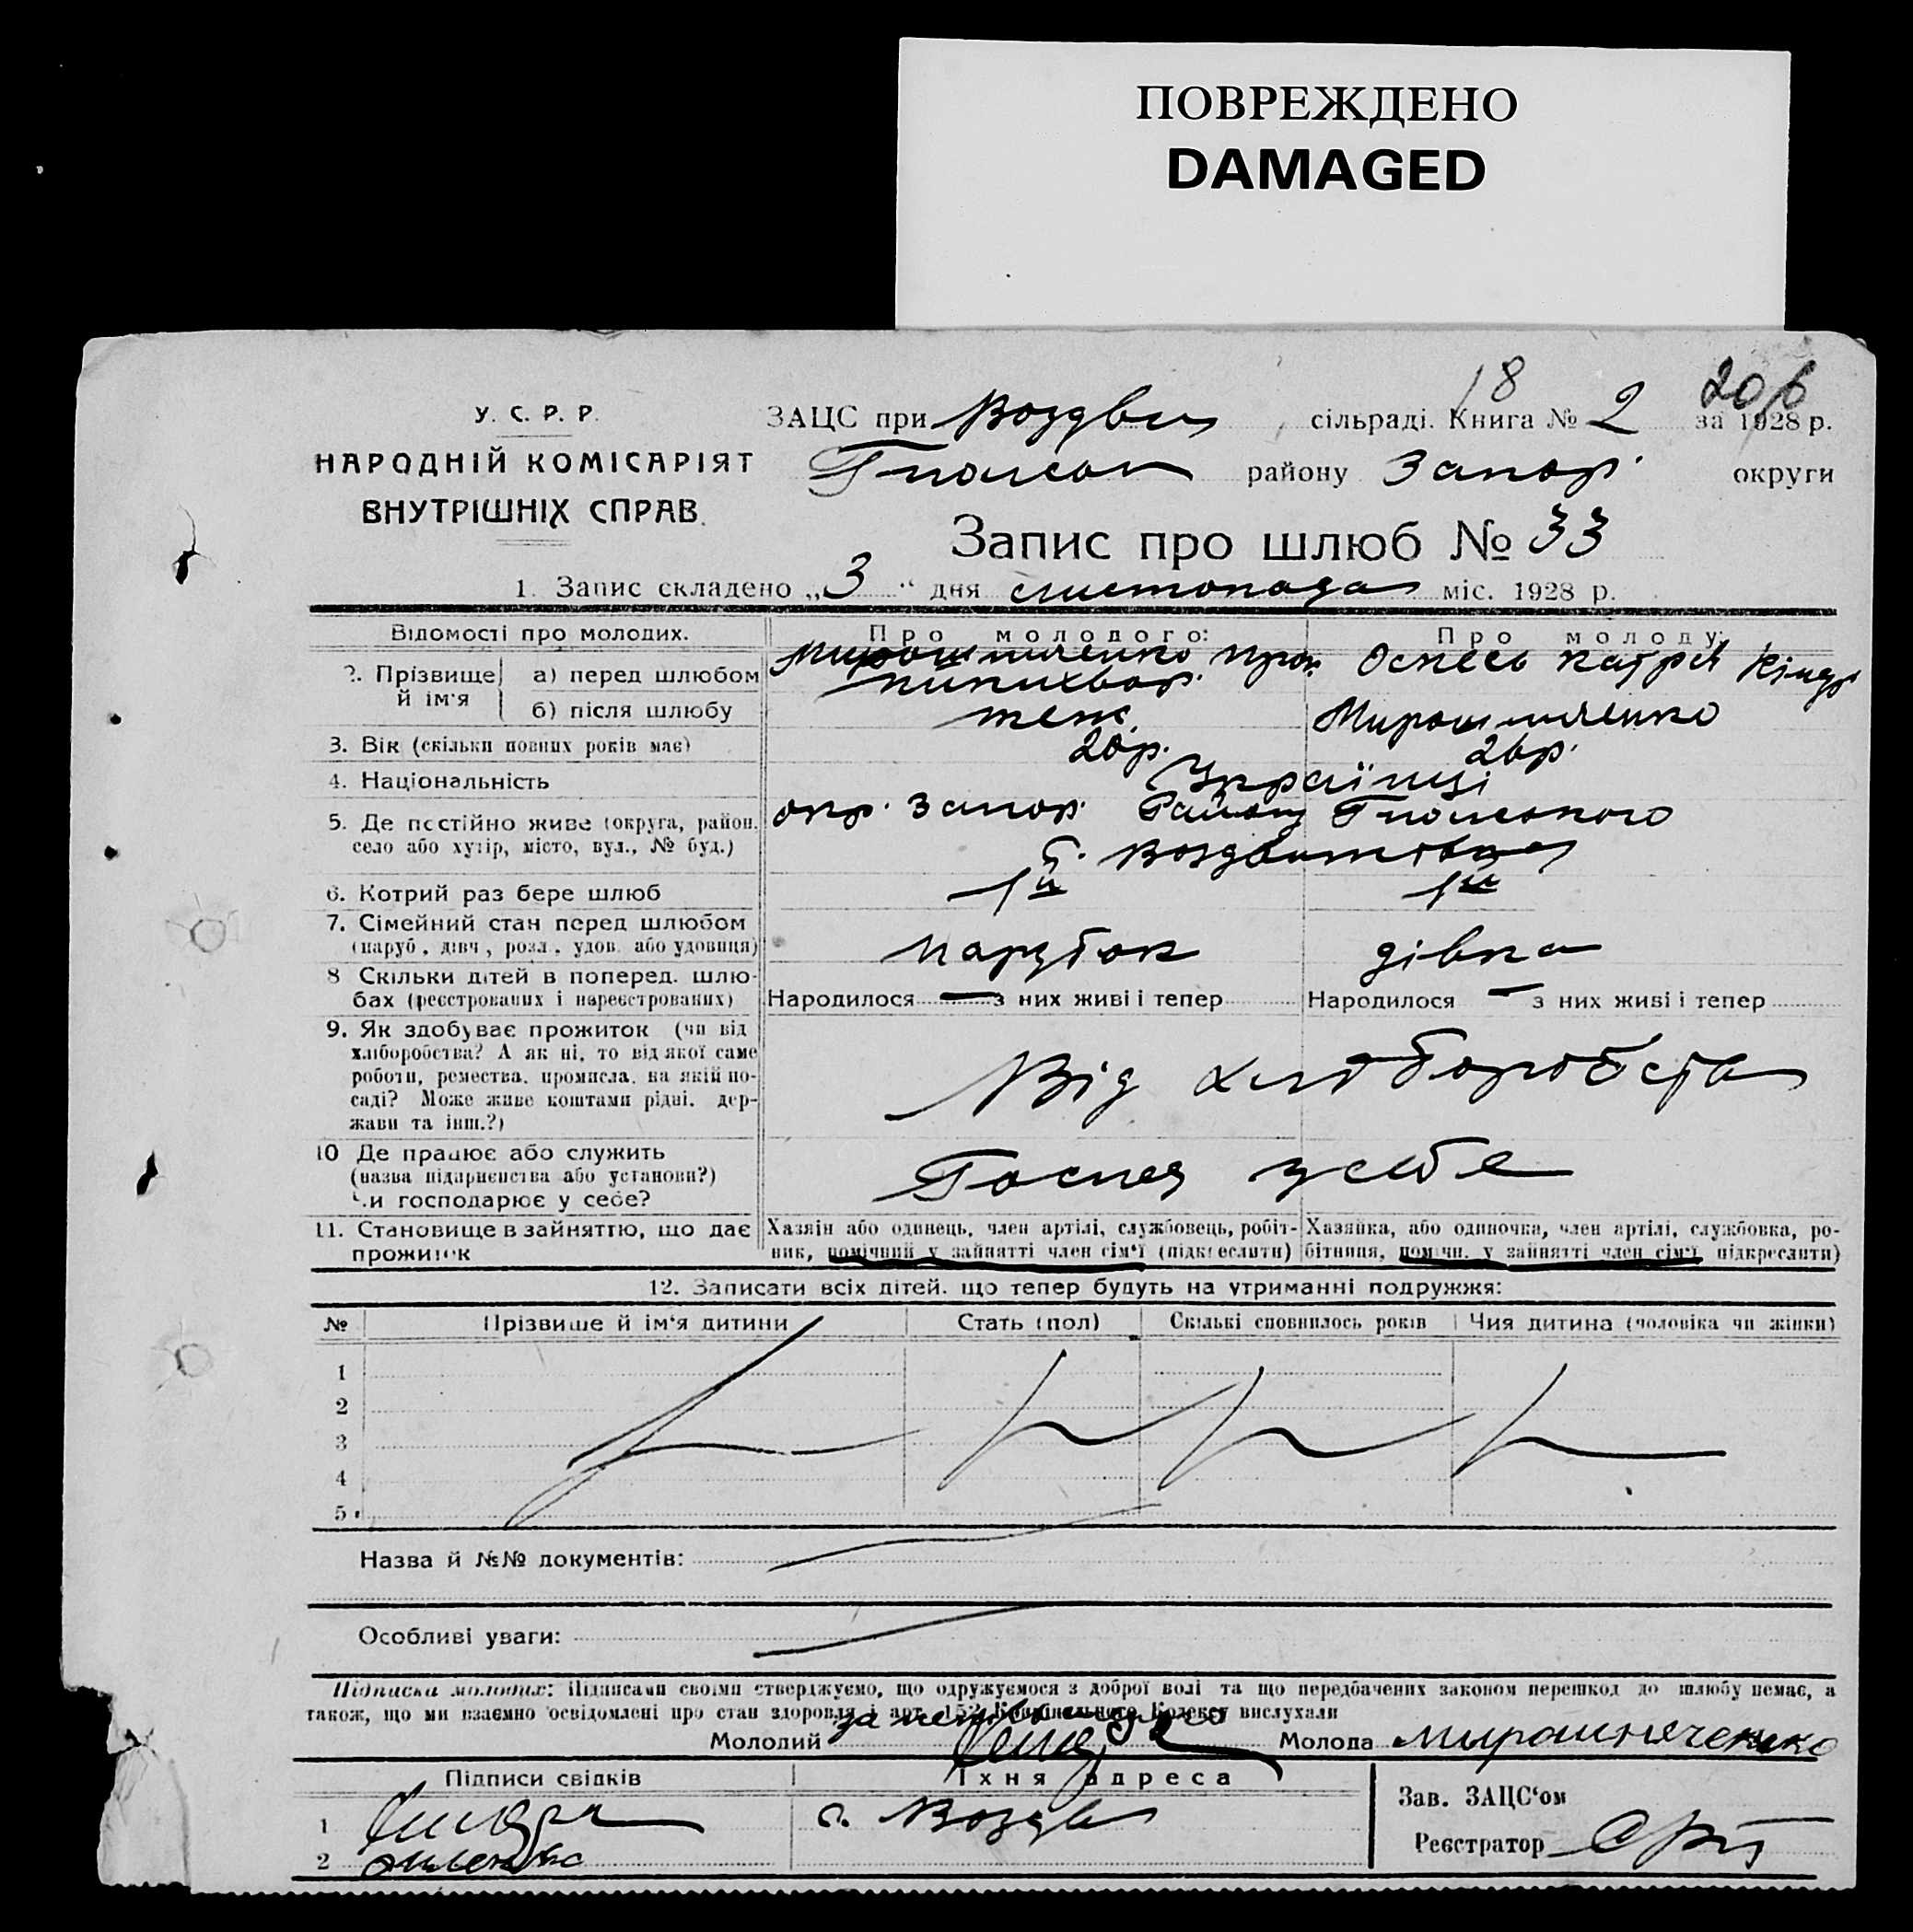 ПОВРЕЖДЕНО
DAMAGED
18
206
У. С. Р. Р.
НАРОДНІЙ КОМІСАРІЯТ
ВНУТРІШНІХ СПРАВ.
ЗАЦС при Воздви сільраді. Книга № 2 за 1928 р.
району Запор. округи
Запис про шлюб № 33
1. Запис складено „3“ дня листопада міс. 1928 р.
Відомості про молодих.
Про молодого:
Про молоду:
2. Прізвище й ім'я
а) перед шлюбом
Мирошниченко
Катрія Кіндр
б) після шлюбу
теж
Мирошниченко
3. Вік (скільки повних років має)
20р.
26р.
4. Національність
Українці
5. Де постійно живе (округа, район,
село або хутір, місто, вул., № буд.)
окр. Запор. Району
с.
6. Котрий раз бере шлюб
1й
1й
7. Сімейний стан перед шлюбом
(паруб., дівч., розл., удов. або удовиця)
парубок
дівка
8 Скільки дітей в поперед. шлю-
бах (реєстрованих і нареєстрованих)
Народилося — з них живі і тепер
Народилося — з них живі і тепер
9. Як здобуває прожиток (чи від
хліборобства? А як ні, то від якої саме
роботи, ремества, промисла, на якій по-
саді? Може живе коштами рідні, дер-
жави та інш.?)
Від хліборобства
10 Де працює або служить
(назва підприємства або установи?)
Чи господарює у себе?
у себе
11. Становище в зайняттю, що дає
прожиток
Хазяїн або одинець, член артілі, службовець, робіт-
ник, помічний у зайнятті член сім'ї (підкреслити)
Хазяйка, або одиночка, член артілі, службовка, ро-
бітниця, помічн. у зайнятті член сім'ї підкреслити)
12. Записати всіх дітей, що тепер будуть на утриманні подружжя:
№ Прізвище й ім'я дитини Стать (пол) Скількі сповнилось років Чия дитина (чоловіка чи жінки)
1
2
3
4
5
Назва й №№ документів:
Особливі уваги:
Підписка молодих: Підписами своїми стверджуємо, що одружуємося з доброї волі та що передбачених законом перешкод до шлюбу немає, а
також, що ми взаємно освідомлені про стан здоровля і арт. 152 Кримінального Кодексу вислухали
Молодий
Молода Мирошняченко
Підписи свідків
Їхня адреса
1
с. Воздв
2
Зав. ЗАЦС'ом
Реєстратор